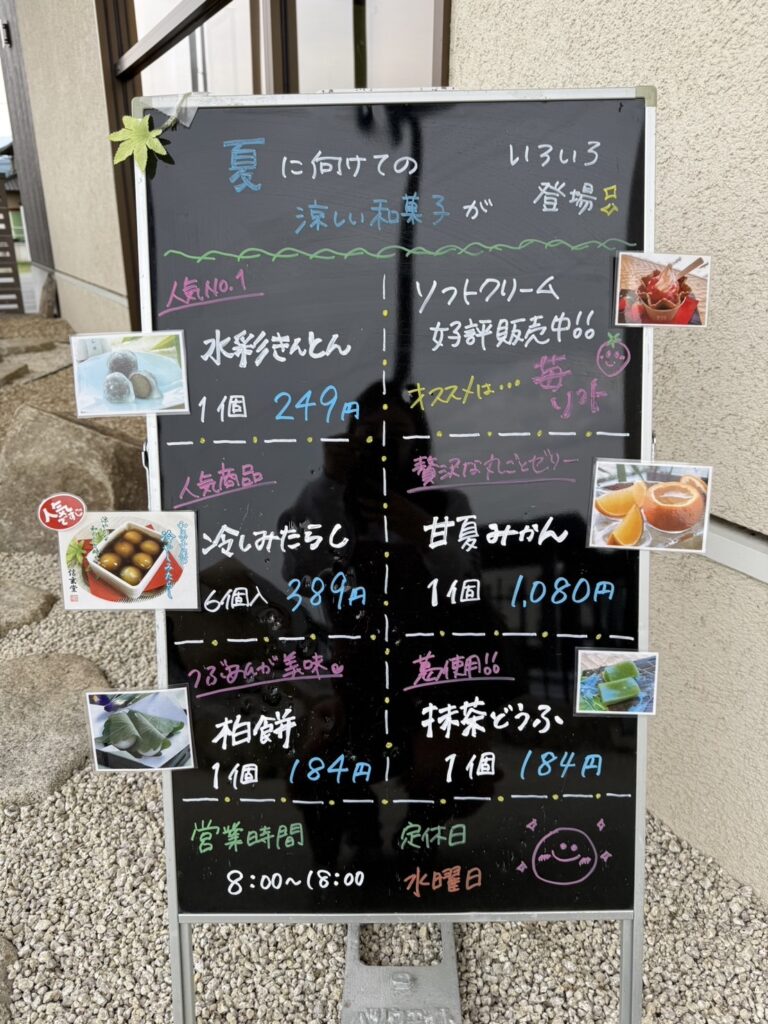 夏に向けての
涼しい和菓子が
いろいろ
登場
人気No.1
水彩きんとん
1個 249円
ソフトクリーム
好評販売中!!
オススメは…苺
ソフト
人気商品
冷しみたらし
6個入 389円
贅沢な丸ごとゼリー
甘夏みかん
1個 1,080円
人気
ですョ
冷やしみたらし
つぶあんが美味
柏餅
1個 184円
葛使用!!
抹茶どうふ
1個 184円
営業時間
8:00~18:00
定休日
水曜日